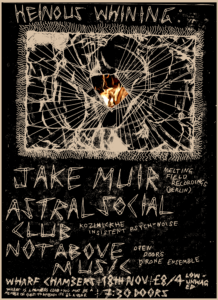 HEINOUS WHINING:
JAKE MUIR
MELTING
FIELD
RECORDINGS
(BERLIN)
ASTRAL SOCIAL
CLUB
KOZMISCHE
INSISTENT PSYCH-NOISE
NOT ABOVE
MUSIC
OPEN
DOORS
DRONE ENSEMBLE
WHARF CHAMBERS 18TH NOV £8/4
LOW-
WAGED
7:30 DOORS